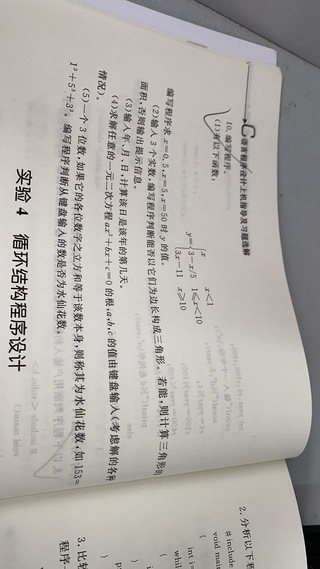 C语言程序设计上机指导及习题选解
10. 编写程序。
(1) 有以下函数：
y={x x<1
3−x/5 1⩽x<10
3x−11 x⩾10
编写程序求x=0.5,x=5,x=50时y的值。
(2)输入3个实数,编写程序判断能否以它们为边长构成三角形。若能,则计算三角形的
面积,否则输出提示信息。
(3)输入年、月、日,计算该日是该年的第几天。
(4)求解任意的一元二次方程ax²+bx+c=0的根,a、b、c的值由键盘输入(考虑解的各种
情况)。
(5)一个3位数,如果它的各位数字之立方和等于该数本身,则称其为水仙花数,如153=
1³+5³+3³。编写程序判断从键盘输入的数是否为水仙花数。
实验 4 循环结构程序设计
2. 分析以下程
# include
void main
{
int i=
whil
{
}
3. 比较
程序